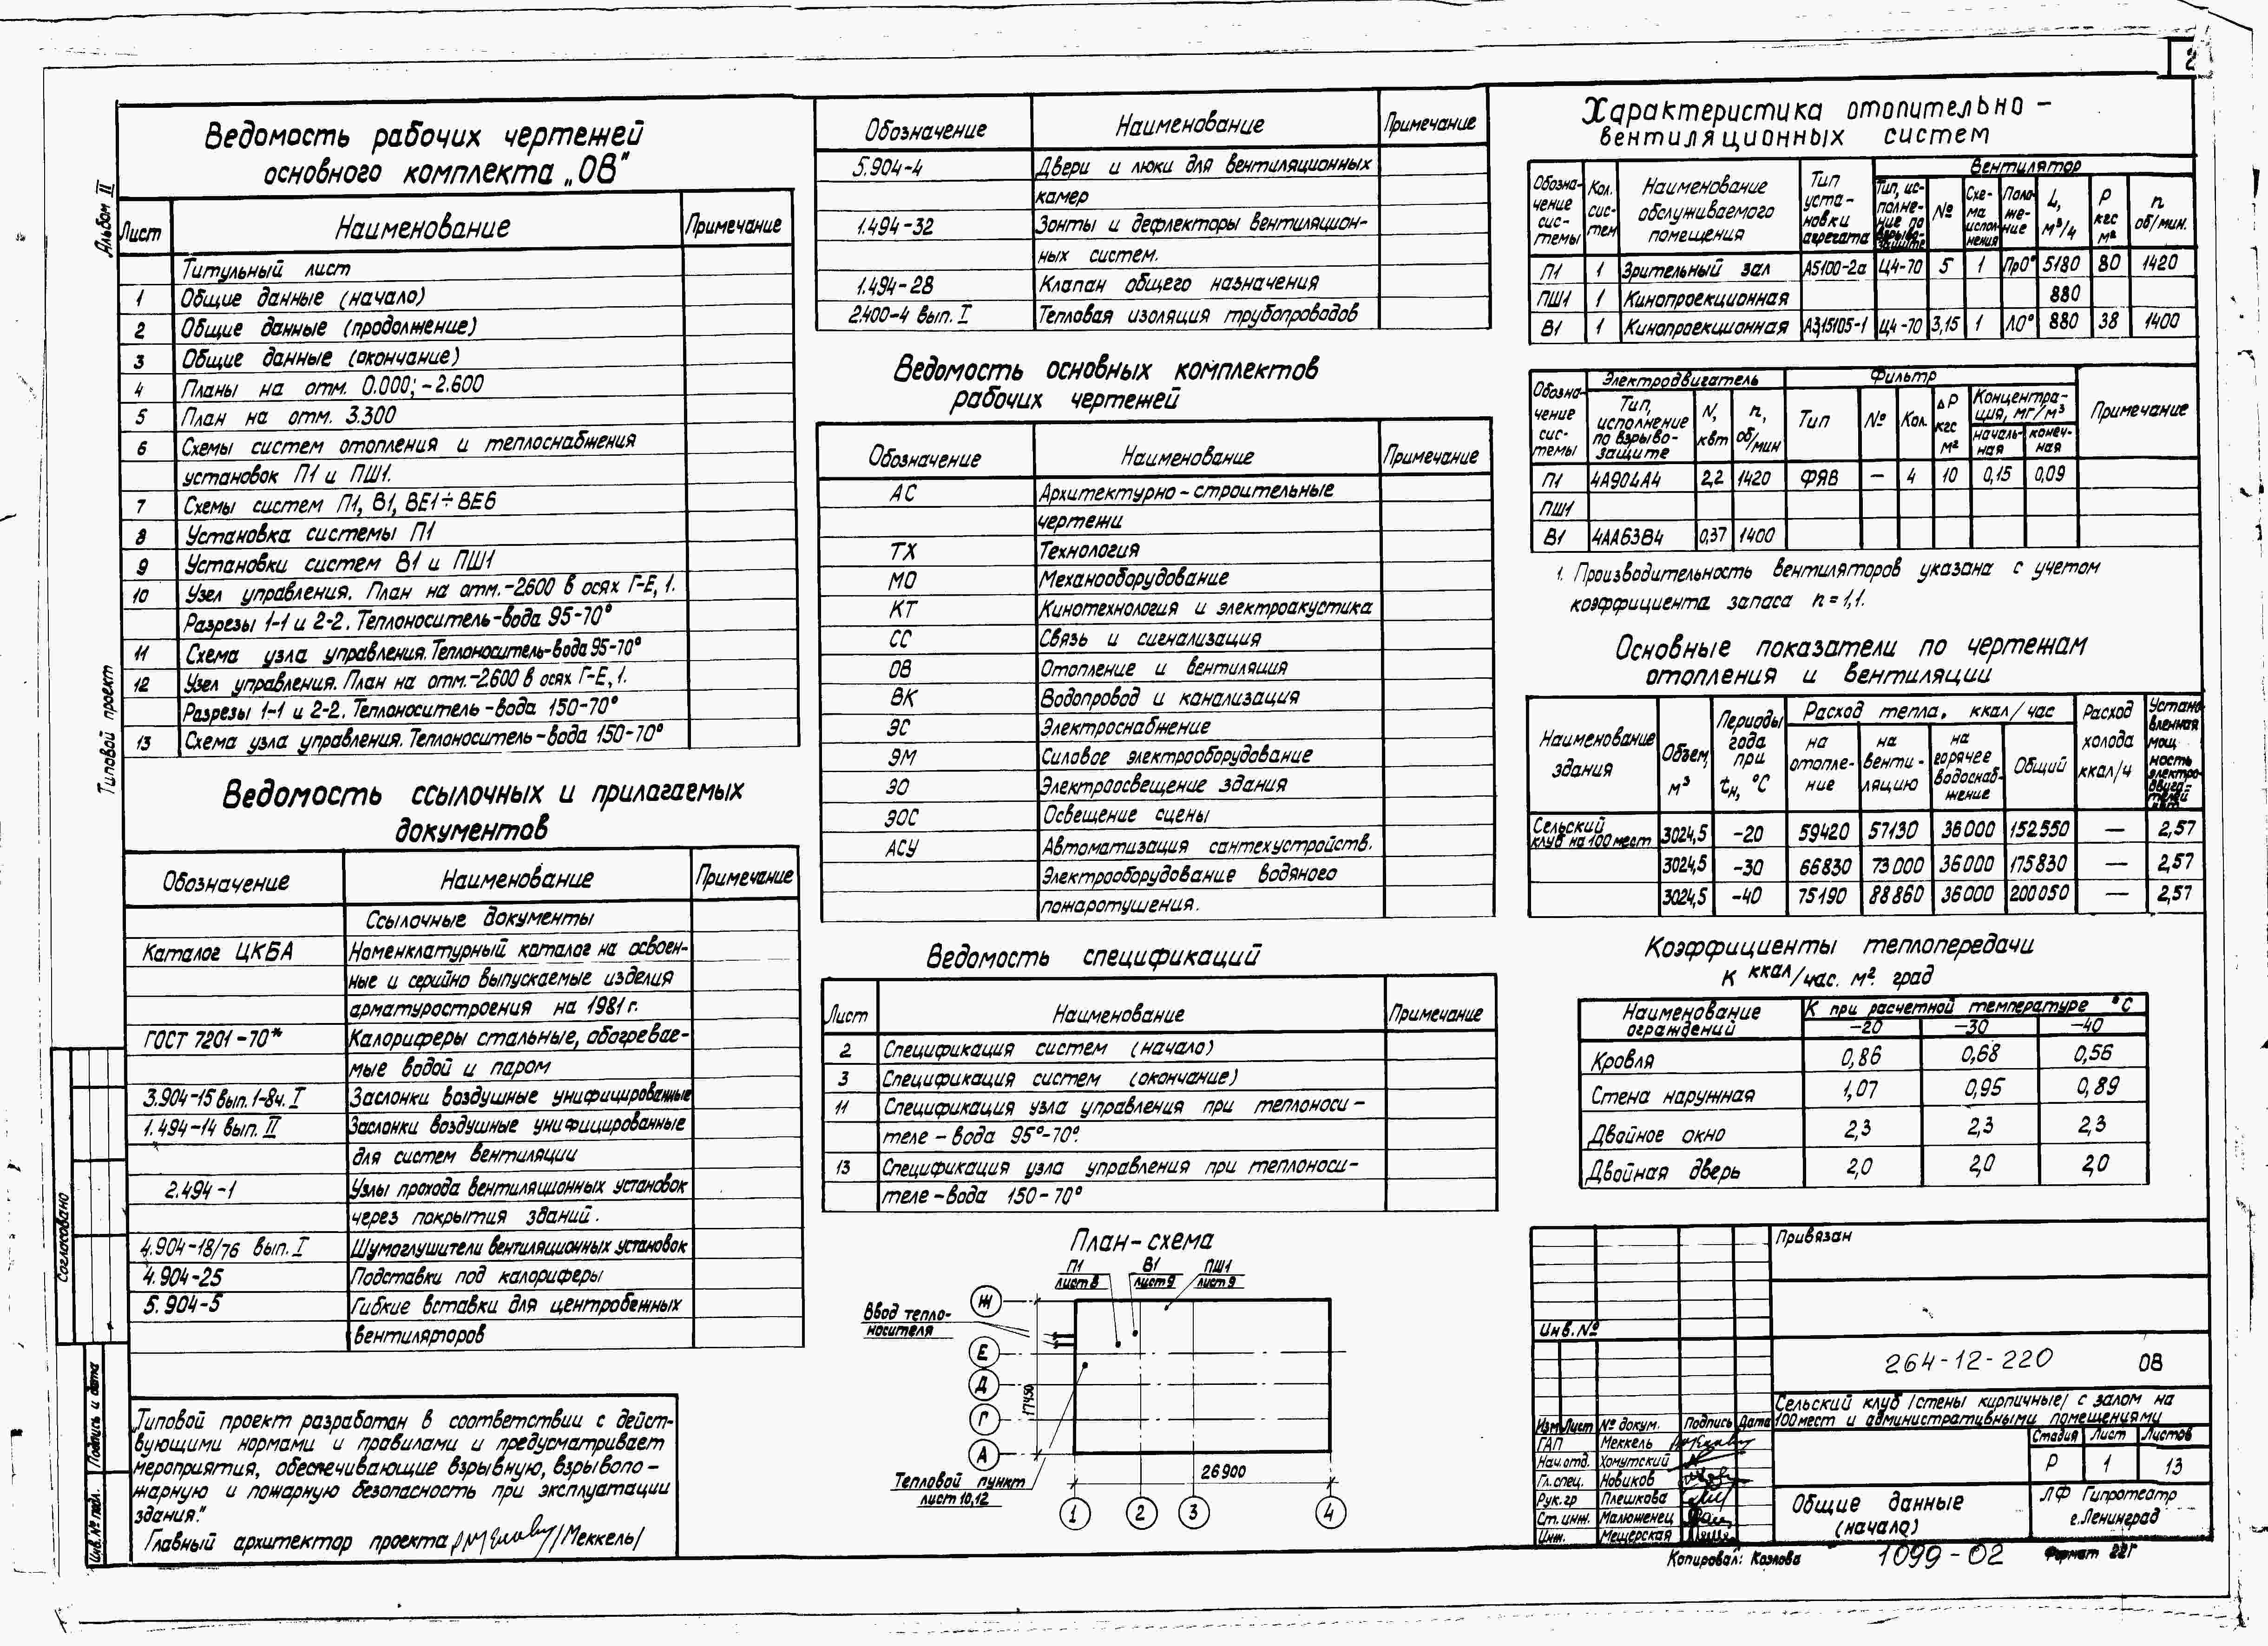 2
Альбом II
Типовой проект
Ведомость рабочих чертежей
основного комплекта „ОВ"
Лист Наименование Примечание
Титульный лист
1 Общие данные (начало)
2 Общие данные (продолжение)
3 Общие данные (окончание)
4 Планы на отм. 0.000; -2.600
5 План на отм. 3.300
6 Схемы систем отопления и теплоснабжения
установок П1 и ПШ1.
7 Схемы систем П1, В1, ВЕ1÷ВЕ6
8 Установка системы П1
9 Установки систем В1 и ПШ1
10 Узел управления. План на отм.-2600 в осях Г-Е, 1.
Разрезы 1-1 и 2-2. Теплоноситель-вода 95-70°
11 Схема узла управления. Теплоноситель-вода 95-70°
12 Узел управления. План на отм.-2600 в осях Г-Е, 1.
Разрезы 1-1 и 2-2. Теплоноситель-вода 150-70°
13 Схема узла управления. Теплоноситель-вода 150-70°
Ведомость ссылочных и прилагаемых
документов
Обозначение Наименование Примечание
Ссылочные документы
Каталог ЦКБА Номенклатурный каталог на освоен-
ные и серийно выпускаемые изделия
арматуростроения на 1981г.
ГОСТ 7201-70* Калориферы стальные, обогревае-
мые водой и паром
3.904-15 вып.1-8ч. I Заслонки воздушные унифицированные
1.494-14 вып. II Заслонки воздушные унифицированные
для систем вентиляции
2.494-1 Узлы прохода вентиляционных установок
через покрытия зданий.
4.904-18/76 вып. I Шумоглушители вентиляционных установок
4.904-25 Подставки под калориферы
5.904-5 Гибкие вставки для центробежных
вентиляторов
„Типовой проект разработан в соответствии с дейст-
вующими нормами и правилами и предусматривает
мероприятия, обеспечивающие взрывную, взрывопо-
жарную и пожарную безопасность при эксплуатации
здания."
Главный архитектор проекта /Меккель/
Согласовано
Подпись и дата
Инв. № подл.
Обозначение Наименование Примечание
5.904-4 Двери и люки для вентиляционных
камер
1.494-32 Зонты и дефлекторы вентиляцион-
ных систем.
1.494-28 Клапан общего назначения
2.400-4 вып. I Тепловая изоляция трубопроводов
Ведомость основных комплектов
рабочих чертежей
Обозначение Наименование Примечание
АС Архитектурно-строительные
чертежи
ТХ Технология
МО Механооборудование
КТ Кинотехнология и электроакустика
СС Связь и сигнализация
ОВ Отопление и вентиляция
ВК Водопровод и канализация
ЭС Электроснабжение
ЭМ Силовое электрооборудование
ЭО Электроосвещение здания
ЭОС Освещение сцены
АСУ Автоматизация сантехустройств.
Электрооборудование водяного
пожаротушения.
Ведомость спецификаций
Лист Наименование Примечание
2 Спецификация систем (начало)
3 Спецификация систем (окончание)
11 Спецификация узла управления при теплоноси-
теле-вода 95°-70°.
13 Спецификация узла управления при теплоноси-
теле-вода 150-70°
План-схема
П1 В1 ПШ1
лист 8 лист 9 лист 9
Ввод тепло-
носителя
Ж
Е
Д
Г
А
17450
26900
Тепловой пункт
лист 10,12
1 2 3 4
Характеристика отопительно-
вентиляционных систем
Обозна-
чение
сис-
темы
Кол.
сис-
тем
Наименование
обслуживаемого
помещения
Тип
уста-
новки
агрегата
Вентилятор
Тип, ис-
полне-
ние по
взрыво-
защите
№
Схе-
ма
испол-
нения
Поло-
же-
ние
L,
м³/ч
Р
кгс
м²
n
об/мин.
П1 1 Зрительный зал А5100-2а Ц4-70 5 1 Пр0° 5180 80 1420
ПШ1 1 Кинопроекционная 880
В1 1 Кинопроекционная А3,15105-1 Ц4-70 3,15 1 Л0° 880 38 1400
Обозна-
чение
сис-
темы
Электродвигатель
Тип,
исполнение
по взрыво-
защите
N,
квт
n,
об/мин
Фильтр
Тип № Кол.
ΔР
кгс
м²
Концентра-
ция, мг/м³
началь-
ная
конеч-
ная
Примечание
П1 4А90L4A4 2,2 1420 ФЯВ — 4 10 0,15 0,09
ПШ1
В1 4АА63В4 0,37 1400
1. Производительность вентиляторов указана с учетом
коэффициента запаса n=1,1.
Основные показатели по чертежам
отопления и вентиляции
Наименование
здания
Объем,
м³
Периоды
года
при
tн, °С
Расход тепла, ккал/час
на
отопле-
ние
на
венти-
ляцию
на
горячее
водоснаб-
жение
Общий
Расход
холода
ккал/ч
Устано-
вленная
мощ-
ность
электро-
двига-
телей
квт
Сельский
клуб на 100 мест 3024,5 -20 59420 57130 36000 152550 — 2,57
3024,5 -30 66830 73000 36000 175830 — 2,57
3024,5 -40 75190 88860 36000 200050 — 2,57
Коэффициенты теплопередачи
К ккал/час. м². град
Наименование
ограждений
К при расчетной температуре °С
-20 -30 -40
Кровля 0,86 0,68 0,56
Стена наружная 1,07 0,95 0,89
Двойное окно 2,3 2,3 2,3
Двойная дверь 2,0 2,0 2,0
Привязан
Инв. №
264-12-220 ОВ
Сельский клуб /стены кирпичные/ с залом на
100 мест и административными помещениями
Изм Лист № докум. Подпись Дата
ГАП Меккель
Нач.отд. Хомутский
Гл.спец. Новиков
Рук.гр Плешкова
Ст.инж. Малюженец
Инж. Мещерская
Стадия Лист Листов
Р 1 13
Общие данные
(начало)
ЛФ Гипротеатр
г.Ленинград
Копировал: Козлова
1099-02
Формат 22Г